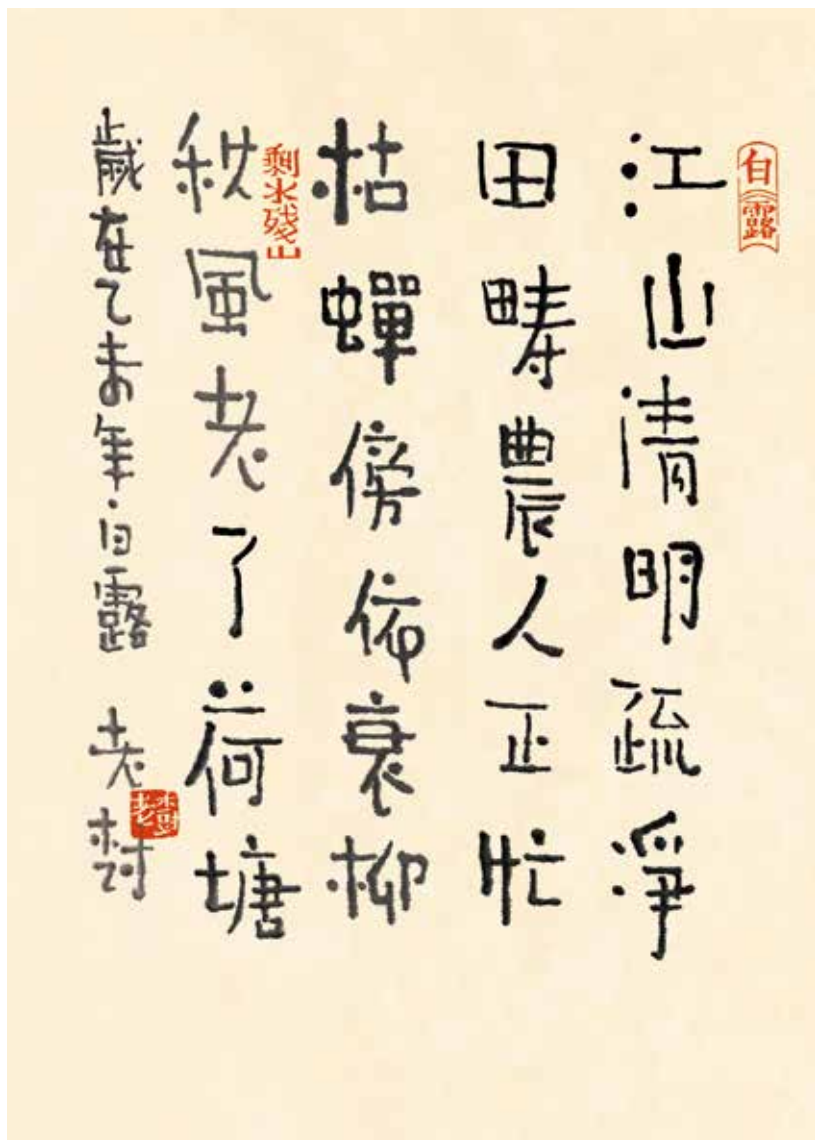 白露
江山清明疏淨
田畴農人正忙
枯蟬傍依衰柳
剩水殘山
秋風老了荷塘
歲在乙未年·白露 老树
老树